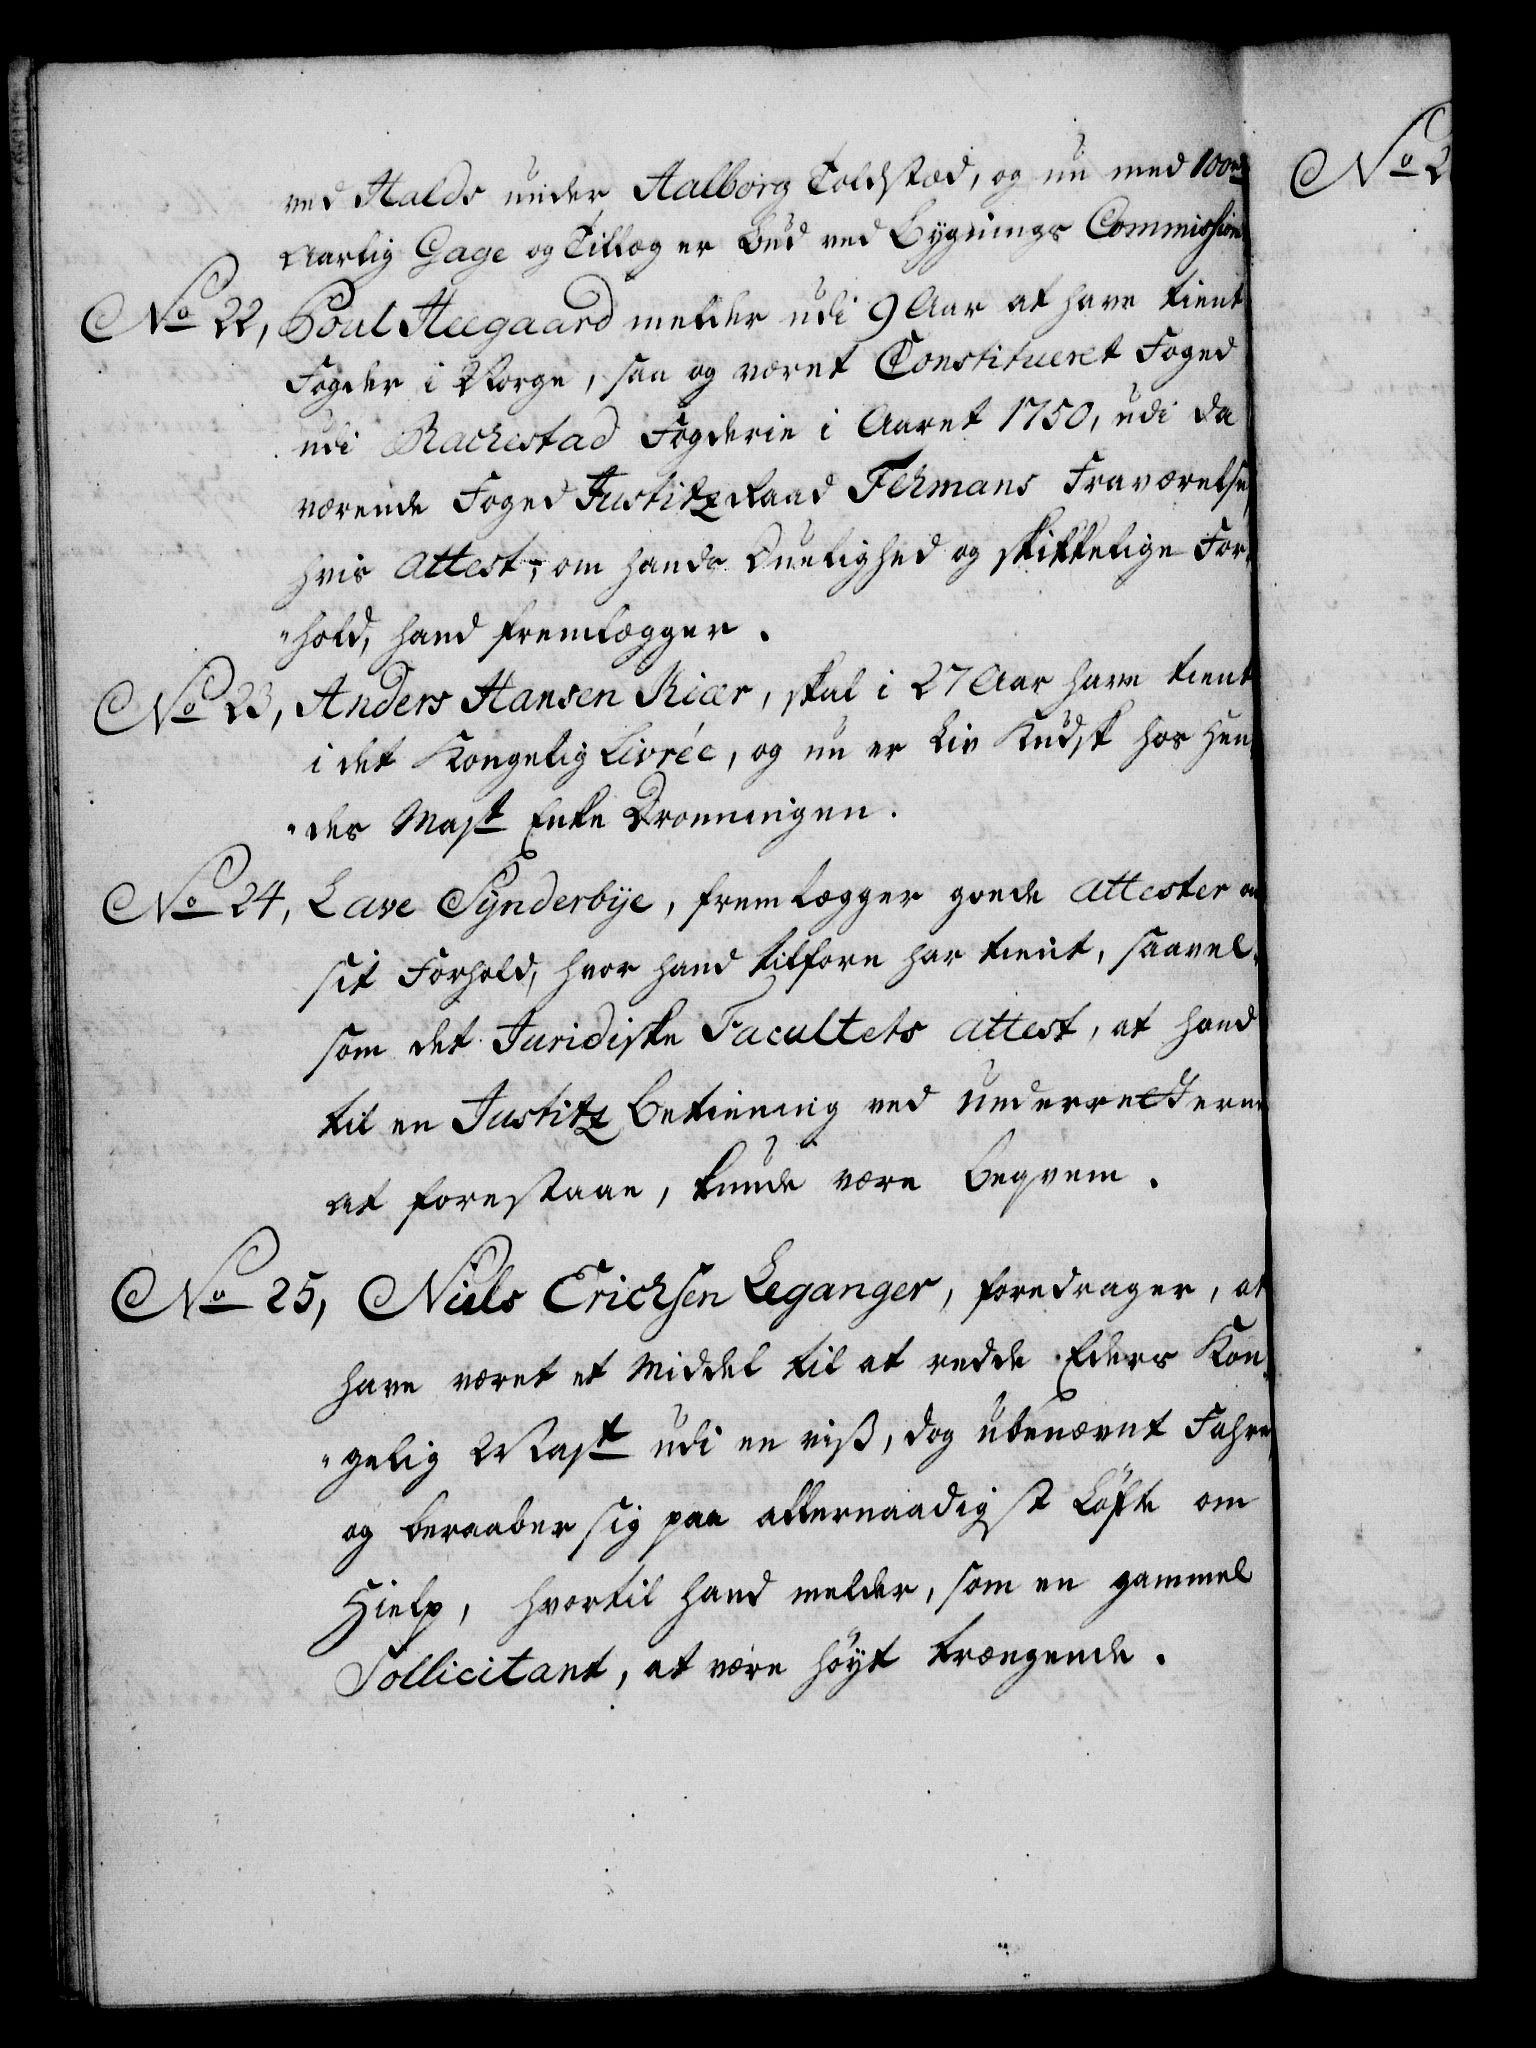 ved Halds under Aalborg Toldstæd, og nu med 100 rd
Aarlig Gage og Tillæg er Bud ved Bygnings Commission
No 22, Poul Heegaard melder udi 9 Aar at have tient
Fogder i Norge, saa og været Constitueret Foged
udi Rackestad Fogderie i Aaret 1750, udi da
værende Foged Justitz Raad Fehmans Fraværelse,
hvis attest, om hands Duelighed og skikkelige For-
"hold, hand fremlægger.
No 23, Anders Hansen Kiær, skal i 27 Aar have tient
i det Kongelig Livrée, og nu er Liv Kudsk hos Hen-
"des Mayst Enke Dronningen.
No 24, Lave Synderbÿe, fremlægger goede attester om
sit Forhold, hvor hand tilforn har tient, saavel-
som det Juridiske Facultets attest, at hand
til en Justitz Betiening ved underretterne
at forestaae, kunde være beqvem.
No 25, Niels Erichsen Leganger, foredrager, at
have været et Middel til at redde Eders Kon-
"gelig Mayst udi en viß, dog ubenævnt Fahre,
og beraaber sig paa allernaadigst Løfte om
Hielp, hvortil hand melder, som en gammel
Sollicitant, at være høyt trængende.
No 2